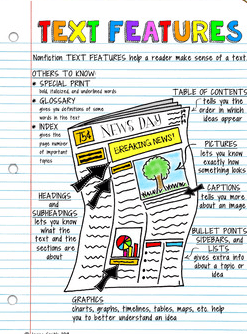 TEXT FEATURES
Nonfiction TEXT FEATURES help a reader make sense of a text.
OTHERS TO KNOW:
• SPECIAL PRINT
bold, italicized, and underlined words
• GLOSSARY
gives you definitions of some
words in the text
• INDEX
gives the
page number
of important
topics
TABLE OF CONTENTS
tells you the
order in which
ideas appear
75¢
NEWS DAY
BREAKING NEWS!
PICTURES
lets you know
exactly how
something looks
CAPTIONS
tells you more
about an image.
HEADINGS
and
SUBHEADINGS
lets you know
what the
text and the
sections are
about
BULLET POINTS
SIDEBARS, and
LISTS
gives extra info
about a topic or
idea
GRAPHICS
charts, graphs, timelines, tables, maps, etc. help
you to better understand an idea